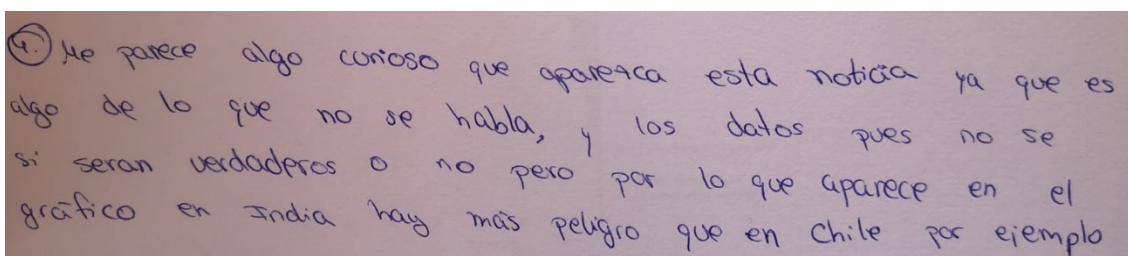 4. Me parece algo curioso que aparezca esta noticia ya que es
algo de lo que no se habla, y los datos pues no se
si seran verdaderos o no pero por lo que aparece en el
gráfico en India hay más peligro que en Chile por ejemplo